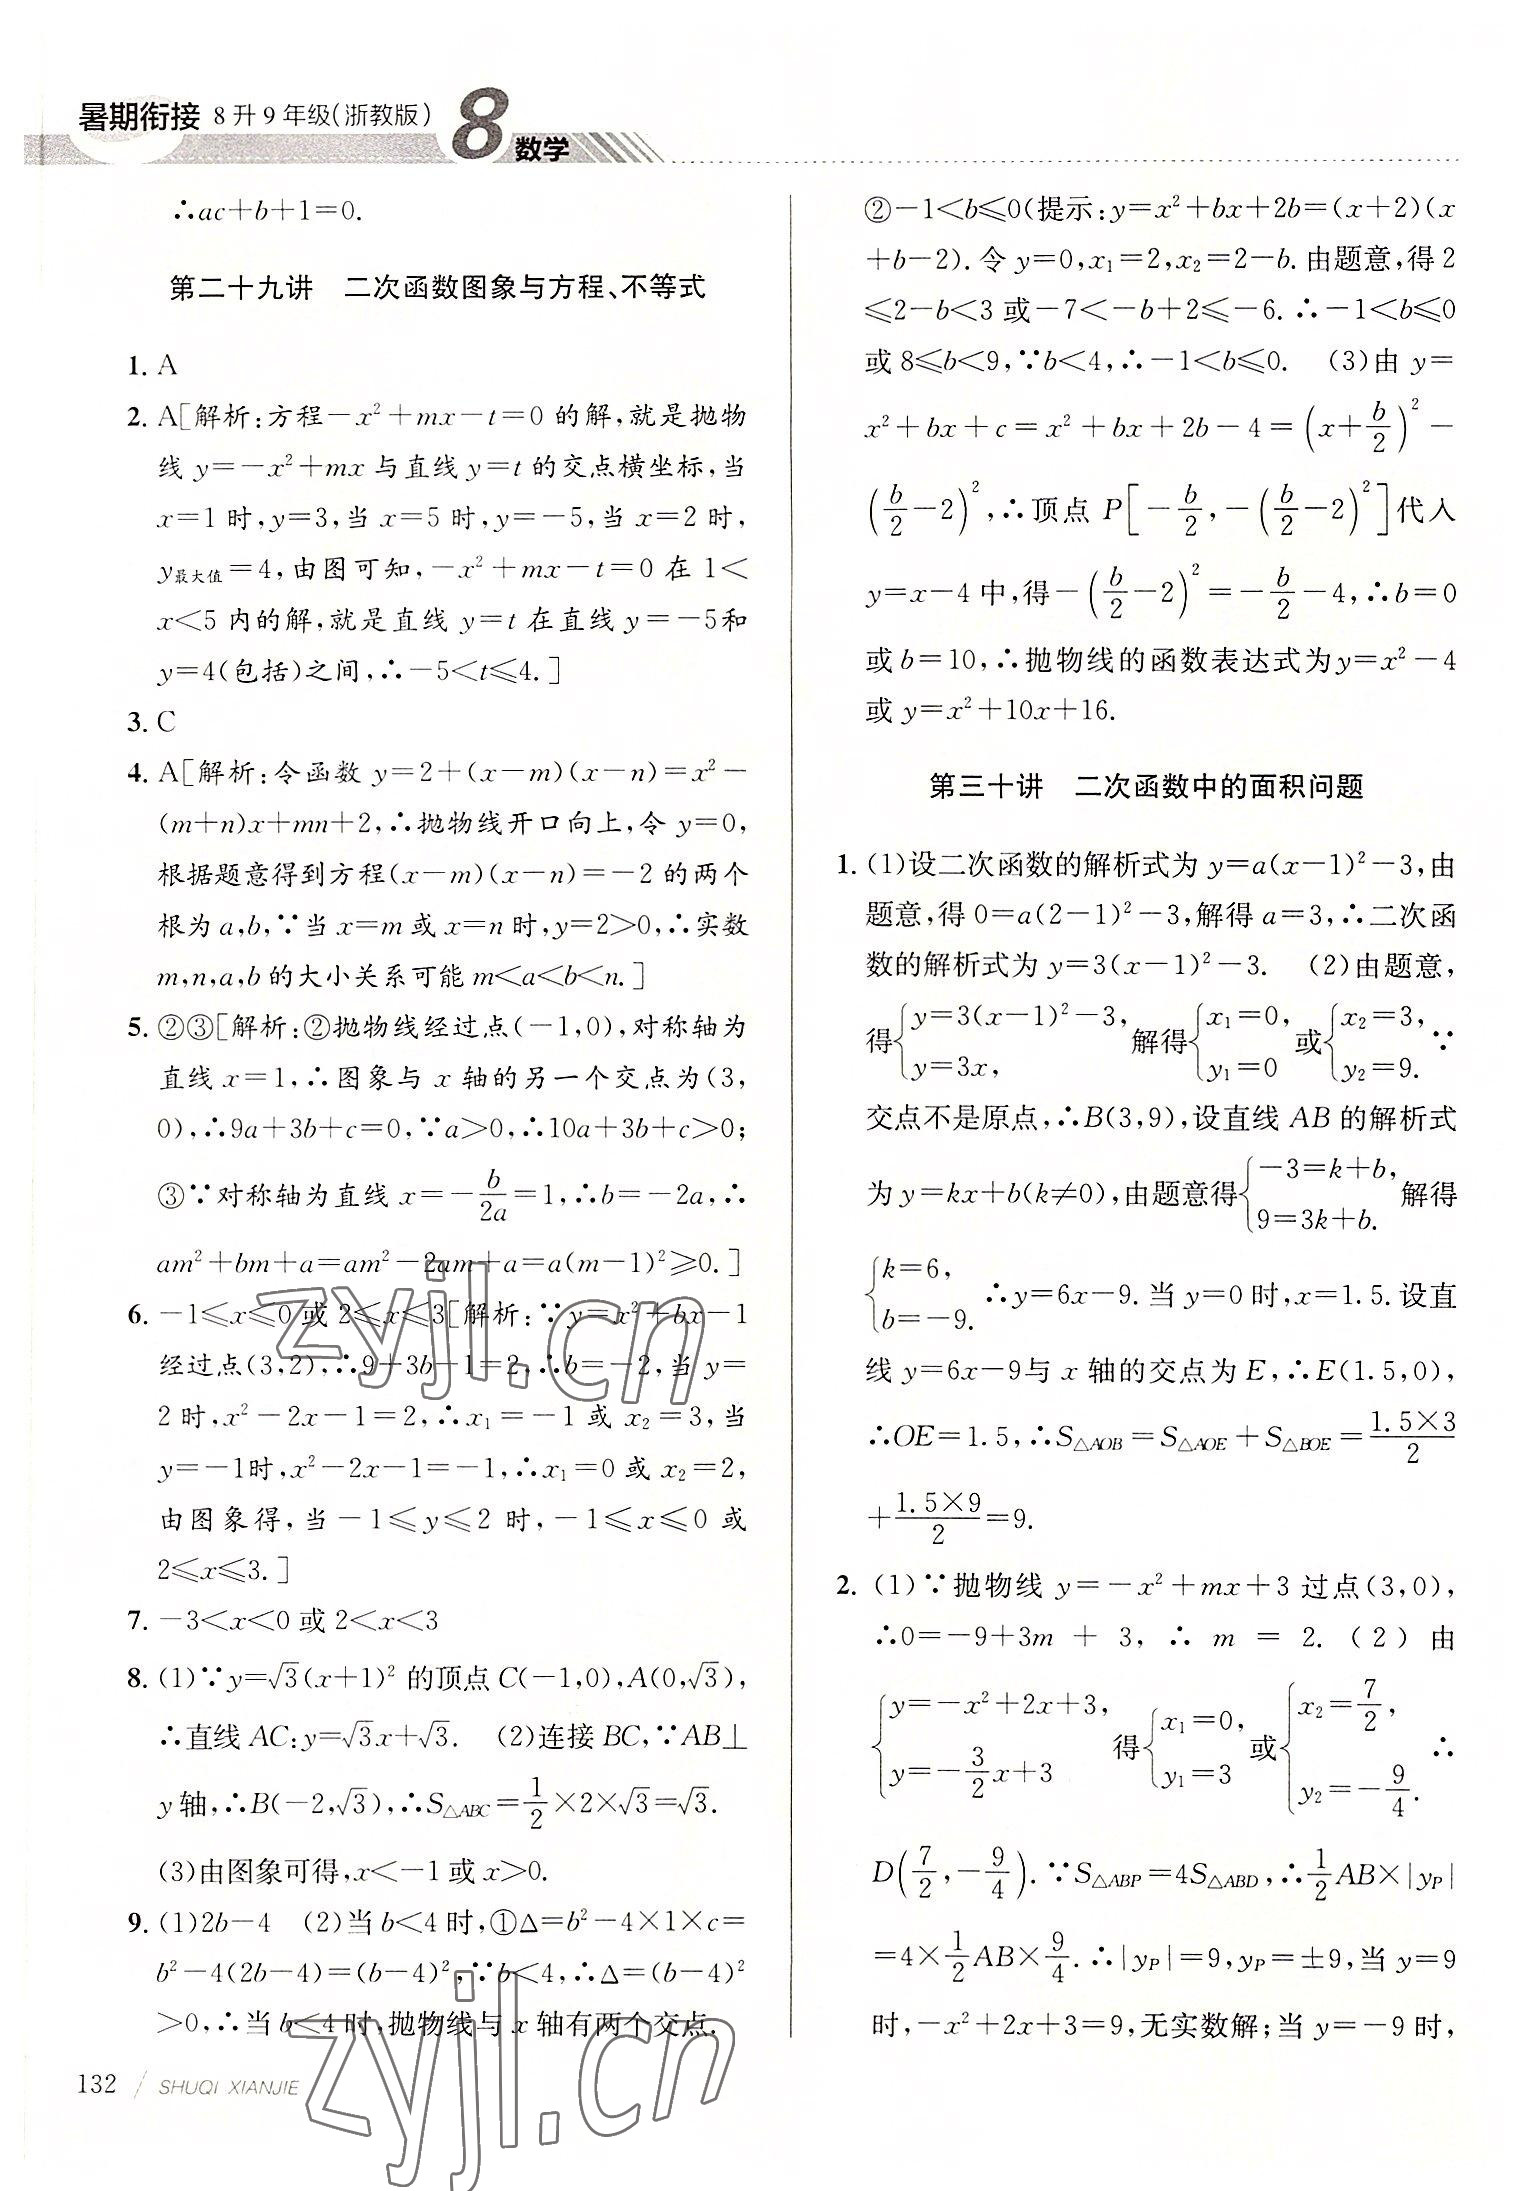 暑期衔接 8升9年级(浙教版) 8 数学
∴ac+b+1=0.
第二十九讲 二次函数图象与方程、不等式
1. A
2. A[解析:方程-x²+mx-t=0的解,就是抛物
线y=-x²+mx与直线y=t的交点横坐标,当
x=1时,y=3,当x=5时,y=-5,当x=2时,
y最大值=4,由图可知,-x²+mx-t=0在1<
x<5内的解,就是直线y=t在直线y=-5和
y=4(包括)之间,∴-5<t≤4.]
3. C
4. A[解析:令函数y=2+(x-m)(x-n)=x²-
(m+n)x+mn+2,∴抛物线开口向上,令y=0,
根据题意得到方程(x-m)(x-n)=-2的两个
根为a,b,∵当x=m或x=n时,y=2>0,∴实数
m,n,a,b的大小关系可能m<a<b<n.]
5. ②③[解析:②抛物线经过点(-1,0),对称轴为
直线x=1,∴图象与x轴的另一个交点为(3,
0),∴9a+3b+c=0,∵a>0,∴10a+3b+c>0;
③∵对称轴为直线x=-b/2a=1,∴b=-2a,∴
am²+bm+a=am²-2am+a=a(m-1)²≥0.]
6. -1≤x≤0或2≤x≤3[解析:∵y=x²+bx-1
经过点(3,2),∴9+3b-1=2,∴b=-2,当y=
2时,x²-2x-1=2,∴x₁=-1或x₂=3,当
y=-1时,x²-2x-1=-1,∴x₁=0或x₂=2,
由图象得,当-1≤y≤2时,-1≤x≤0或
2≤x≤3.]
7. -3<x<0或2<x<3
8. (1)∵y=√3(x+1)²的顶点C(-1,0),A(0,√3),
∴直线AC:y=√3x+√3. (2)连接BC,∵AB⊥
y轴,∴B(-2,√3),∴S△ABC=1/2×2×√3=√3.
(3)由图象可得,x<-1或x>0.
9. (1)2b-4 (2)当b<4时,①Δ=b²-4×1×c=
b²-4(2b-4)=(b-4)²,∵b<4,∴Δ=(b-4)²
>0,∴当b<4时,抛物线与x轴有两个交点.
②-1<b≤0(提示:y=x²+bx+2b=(x+2)(x
+b-2).令y=0,x₁=2,x₂=2-b.由题意,得2
≤2-b<3或-7<-b+2≤-6.∴-1<b≤0
或8≤b<9,∵b<4,∴-1<b≤0. (3)由y=
x²+bx+c=x²+bx+2b-4=(x+b/2)²-
(b/2-2)²,∴顶点P[-b/2,-(b/2-2)²]代入
y=x-4中,得-(b/2-2)²=-b/2-4,∴b=0
或b=10,∴抛物线的函数表达式为y=x²-4
或y=x²+10x+16.
第三十讲 二次函数中的面积问题
1. (1)设二次函数的解析式为y=a(x-1)²-3,由
题意,得0=a(2-1)²-3,解得a=3,∴二次函
数的解析式为y=3(x-1)²-3. (2)由题意,
得{y=3(x-1)²-3, y=3x, 解得{x₁=0, y₁=0 或{x₂=3, y₂=9. ∵
交点不是原点,∴B(3,9),设直线AB的解析式
为y=kx+b(k≠0),由题意得{-3=k+b, 9=3k+b. 解得
{k=6, b=-9. ∴y=6x-9.当y=0时,x=1.5.设直
线y=6x-9与x轴的交点为E,∴E(1.5,0),
∴OE=1.5,∴S△AOB=S△AOE+S△BOE=1.5×3/2
+1.5×9/2=9.
2. (1)∵抛物线y=-x²+mx+3过点(3,0),
∴0=-9+3m+3,∴m=2. (2)由
{y=-x²+2x+3, y=-3/2x+3 得{x₁=0, y₁=3 或{x₂=7/2, y₂=-9/4. ∴
D(7/2,-9/4).∵S△ABP=4S△ABD,∴1/2AB×|yP|
=4×1/2AB×9/4.∴|yP|=9,yP=±9,当y=9
时,-x²+2x+3=9,无实数解;当y=-9时,
132 / SHUQI XIANJIE
zyjl.cn
zyjl.cn